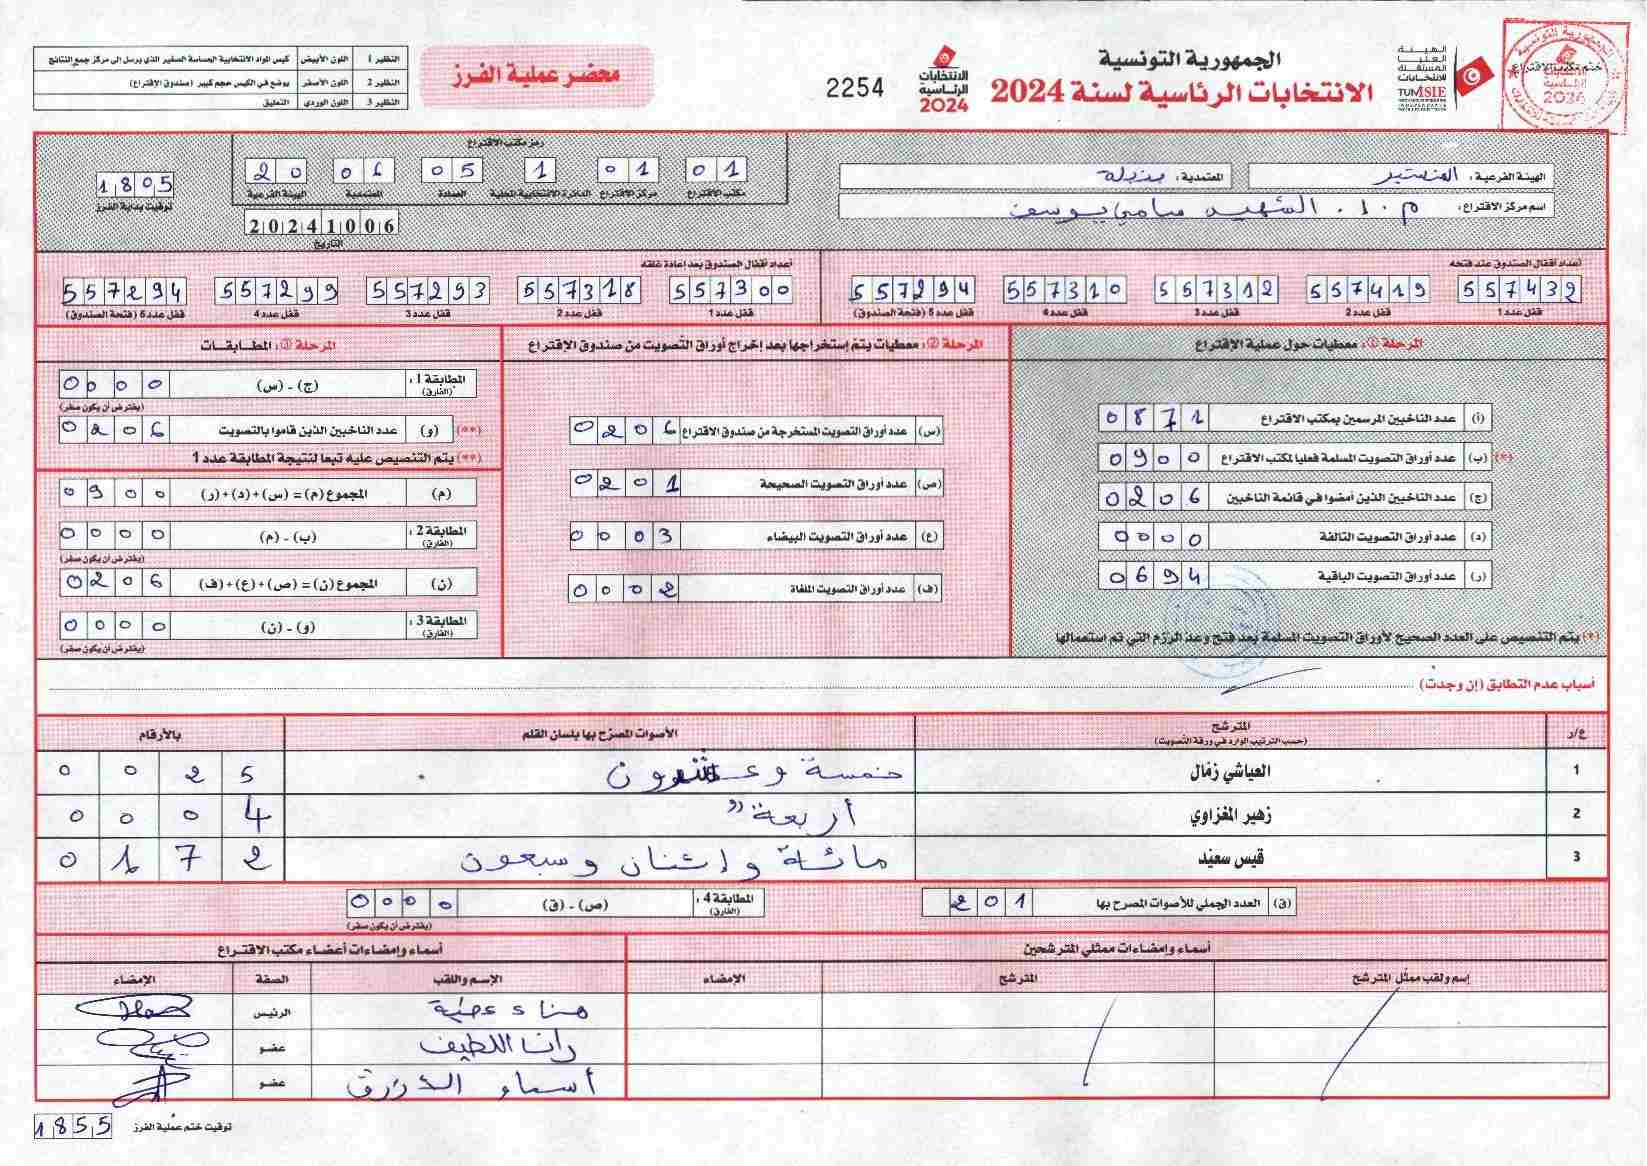 الجمهورية التونسية
الانتخابات الرئاسية لسنة 2024
الهيئة العليا المستقلة للانتخابات
TUNISIE
ختم مكتب الاقتراع
الانتخابات الرئاسية 2024
2254
محضر عملية الفرز
النظير 1 اللون الأبيض كيس المواد الانتخابية الحساسة الصغير الذي يرسل الى مركز جمع النتائج
النظير 2 اللون الأصفر يوضع في الكيس حجم كبير (صندوق الاقتراع)
النظير 3 اللون الوردي التعليق
الهيئة الفرعية: المنستير المعتمدية: بنبلة
اسم مركز الاقتراع: م.ا. الشهيد سامي يوسف
رمز مكتب الاقتراع
20 06 05 1 01 01
الهيئة الفرعية المعتمدية العمادة الدائرة الانتخابية المحلية مركز الاقتراع مكتب الاقتراع
20241006
التاريخ
1805
توقيت بداية الفرز
أعداد أقفال الصندوق عند فتحه
557432 557419 557312 557310 557294
قفل عدد 1 قفل عدد 2 قفل عدد 3 قفل عدد 4 قفل عدد 5 (فتحة الصندوق)
أعداد أقفال الصندوق بعد إعادة غلقه
557300 557318 557293 557299 557294
قفل عدد 1 قفل عدد 2 قفل عدد 3 قفل عدد 4 قفل عدد 5 (فتحة الصندوق)
المرحلة ①: معطيات حول عملية الاقتراع
(أ) عدد الناخبين المرسمين بمكتب الاقتراع 0871
(*) (ب) عدد أوراق التصويت المسلمة فعليا لمكتب الاقتراع 0900
(ج) عدد الناخبين الذين أمضوا في قائمة الناخبين 0206
(د) عدد أوراق التصويت التالفة 0000
(ر) عدد أوراق التصويت الباقية 0694
(*) يتم التنصيص على العدد الصحيح لأوراق التصويت المسلمة بعد فتح وعد الرزم التي تم استعمالها
المرحلة ②: معطيات يتم إستخراجها بعد إخراج أوراق التصويت من صندوق الاقتراع
(س) عدد أوراق التصويت المستخرجة من صندوق الاقتراع 0206
(ص) عدد أوراق التصويت الصحيحة 0201
(ع) عدد أوراق التصويت البيضاء 0003
(ف) عدد أوراق التصويت الملغاة 0002
المرحلة ③: المطابقات
المطابقة 1: (الفارق) (ج) - (س) 0000
(يفترض أن يكون صفر)
(**) (و) عدد الناخبين الذين قاموا بالتصويت 0206
(**) يتم التنصيص عليه تبعا لنتيجة المطابقة عدد 1
(م) المجموع (م) = (س) + (د) + (ر) 0900
المطابقة 2: (الفارق) (ب) - (م) 0000
(يفترض أن يكون صفر)
(ن) المجموع (ن) = (ص) + (ع) + (ف) 0206
المطابقة 3: (الفارق) (و) - (ن) 0000
(يفترض أن يكون صفر)
أسباب عدم التطابق (إن وجدت)
ع/ر المترشح الأصوات المصرح بها بلسان القلم بالأرقام
(حسب الترتيب الوارد في ورقة التصويت)
1 العياشي زمّال خمسة وعشرون 0025
2 زهير المغزاوي أربعة 0004
3 قيس سعيّد مائة وإثنان وسبعون 0172
(ق) العدد الجملي للأصوات المصرح بها 201
المطابقة 4: (الفارق) (ص) - (ق) 0000
(يفترض أن يكون صفر)
أسماء وإمضاءات ممثلي المترشحين
إسم ولقب ممثل المترشح المترشح الإمضاء
أسماء وإمضاءات أعضاء مكتب الاقتراع
الإسم واللقب الصفة الإمضاء
هناء عطية الرئيس
رانيا اللطيف عضو
أسماء الدرزي عضو
توقيت ختم عملية الفرز 1855